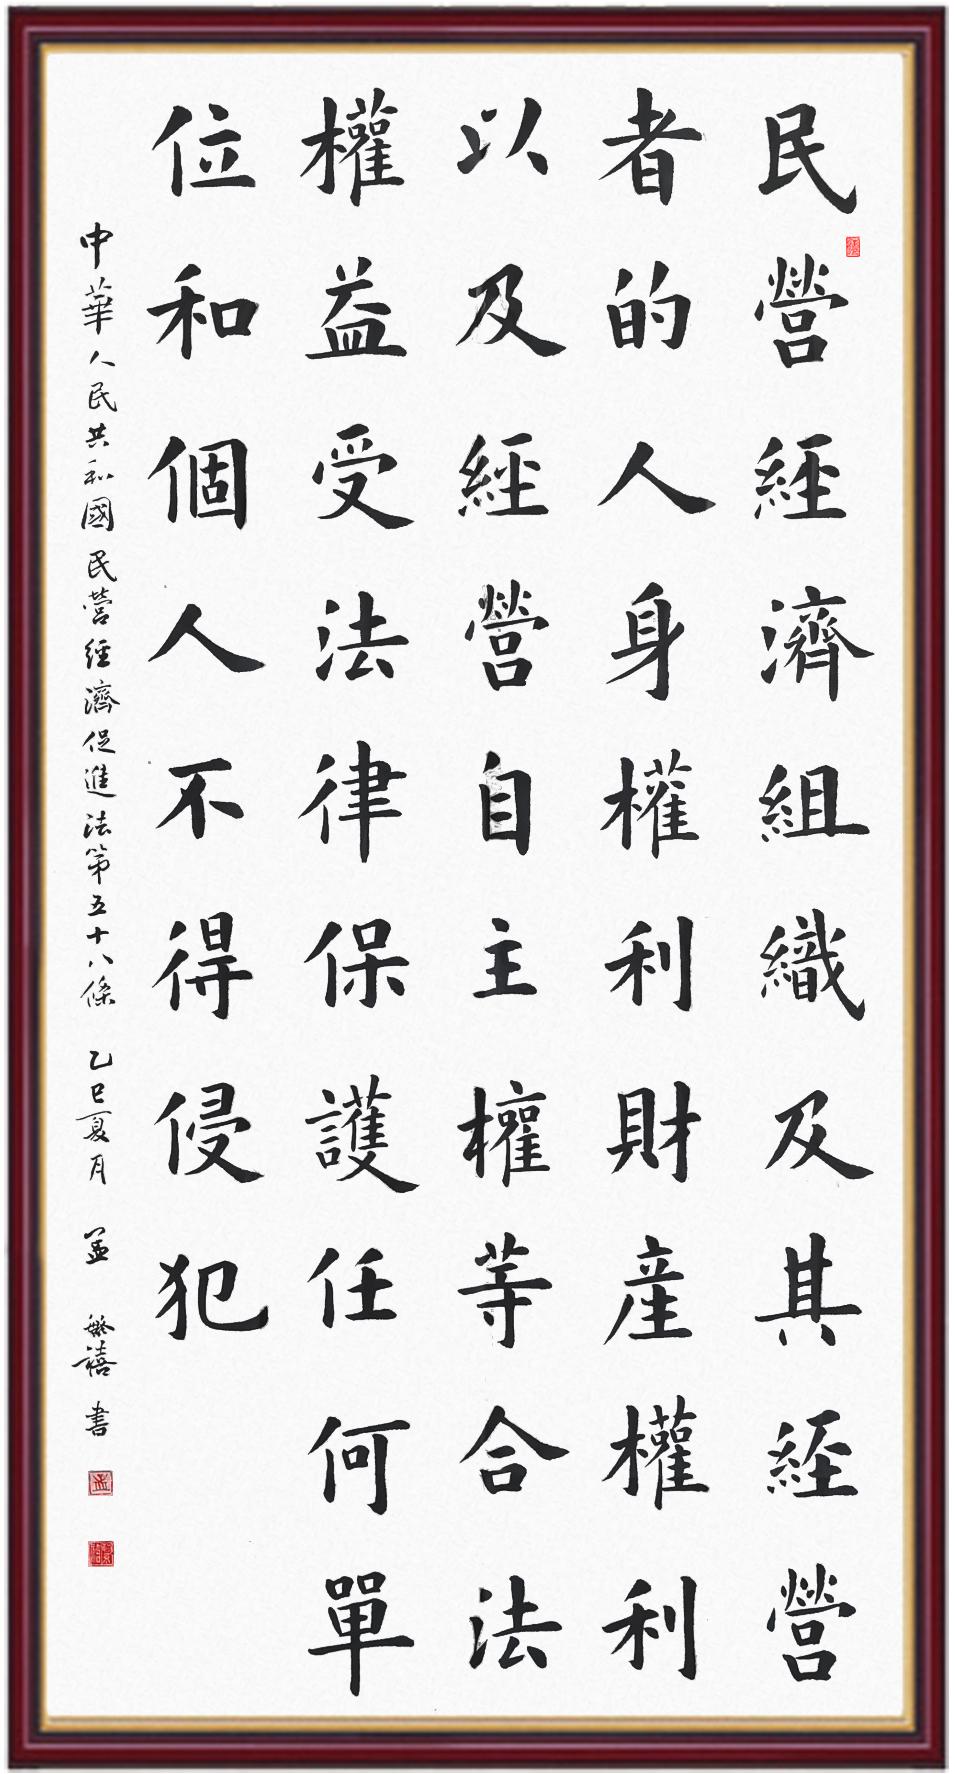 民營經濟組織及其經營
者的人身權利財產權利
以及經營自主權等合法
權益受法律保護任何單
位和個人不得侵犯
中華人民共和國民營經濟促進法第五十八條 乙巳夏月 孟 繁禧 書